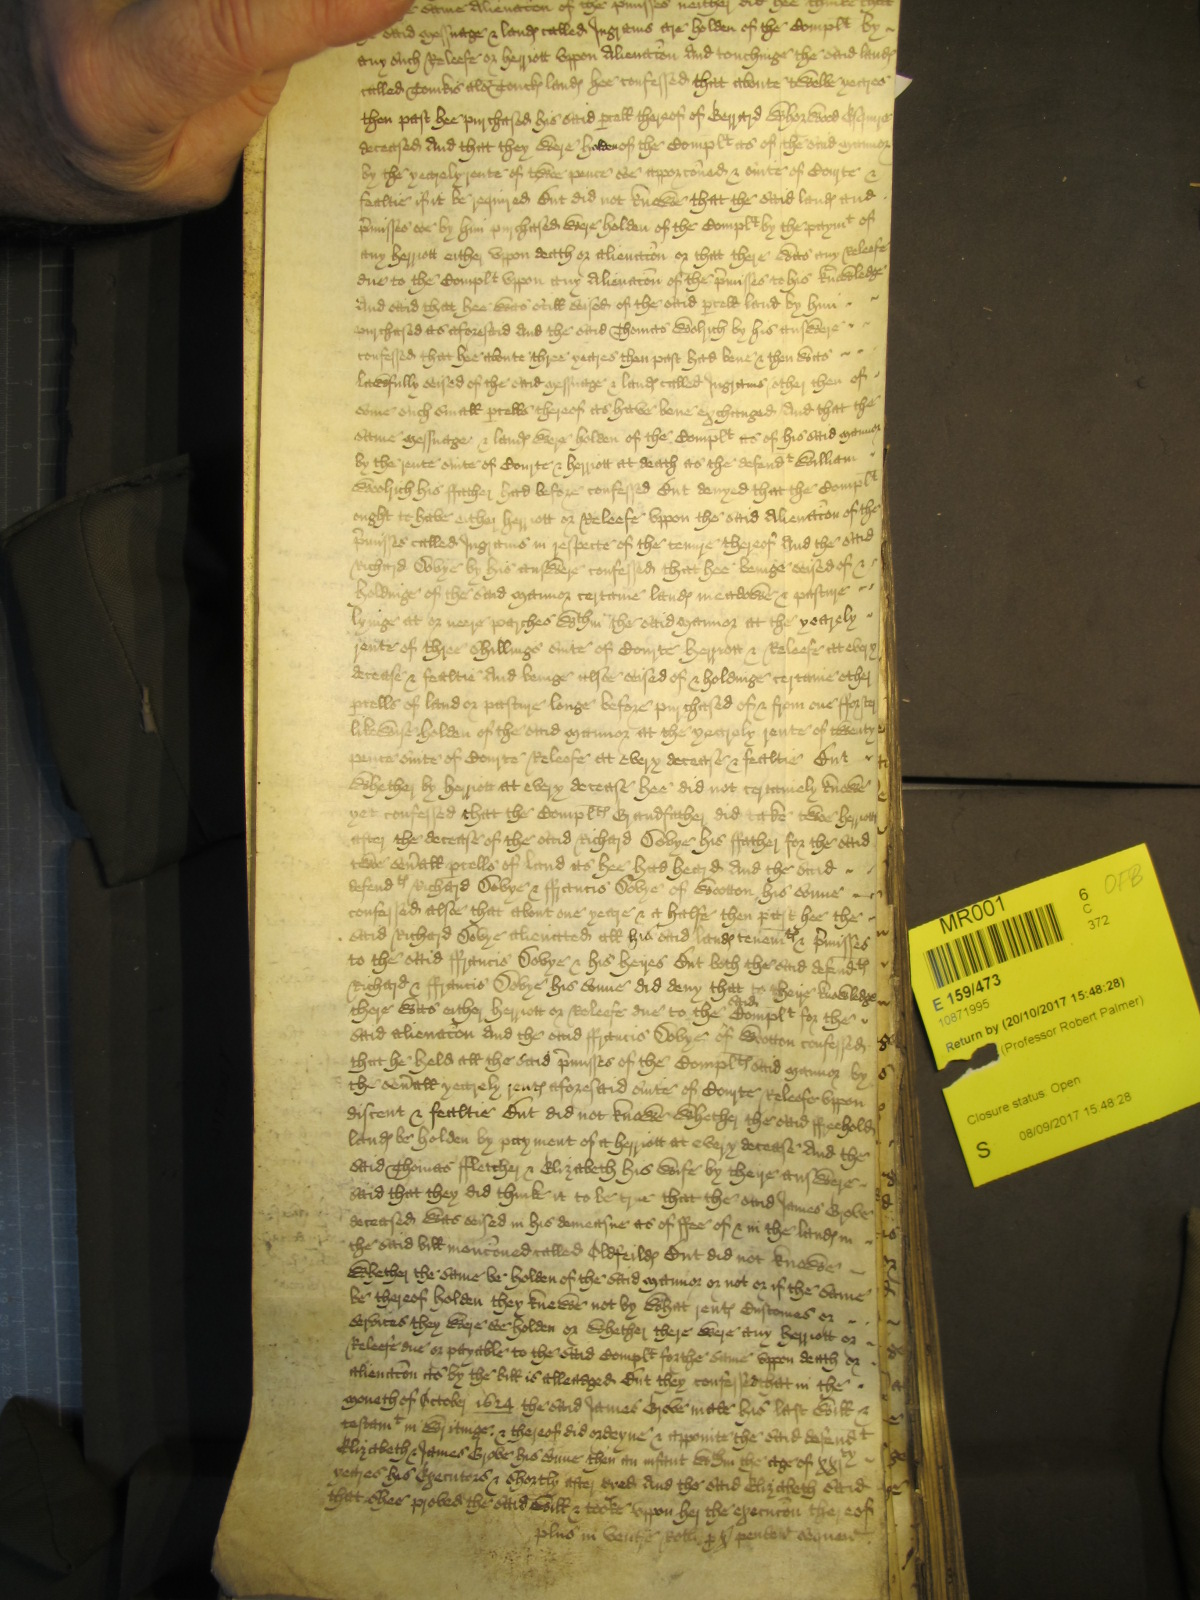 same Alienacon of the p'misses neither did hee thinke that
said messuage & land called Ingrams are holden of the Complt by
any such Releefe or herriott vppon Alienacon And touchinge the said land
called Tonckes land hee confessed that aboute twelve yeares
then past hee purchased his said pcell thereof of Gerrard Whorwood Esquire
deceased And that they were holden of the Complt as of the said mannor
by the yearely rente of twoe pence soe apporconed & suite of Courte &
fealtie if it be required But did not knowe that the said land and
p'misses soe by him purchased were holden of the Complt by the paymt of
any herriott either vppon death or alienacon or that there was any Releefe
due to the Complt vppon any Alienacon of the p'misses to his knowledge
And said that hee was still seised of the said pcell land by him
purchased as aforesaid And the said Thomas Wolrich by his answere
confessed that hee aboute three yeares then past had bene & then was
lawfully seised of the said messuage & land called Ingrams other then of
some such small pcells thereof as have bene exchanged And that the
same messuage & land were holden of the Complt as of his said mannor
by the rente suite of Courte & herriott at death as the defendt William
Wolrich his ffather had before confessed But denyed that the Complt
ought to have either herriott or Releefe vppon the said Alienacon of the
p'misses called Ingrams in respecte of the tenure thereof And the said
Richard Sobye by his answere confessed that hee beinge seised of &
holdinge of the said mannor certaine land meadowe & pasture
lyinge at or neere parches wthin the said mannor at the yearely
rente of three shillings suite of Courte herriott & Releefe at every
decease & fealtie And beinge alsoe seised of & holdinge certaine other
pcells of land or pasture longe before purchased of & from one fforster
likewise holden of the said mannor at the yearely rente of twenty
pence suite of Courte Releefe at every decease & fealtie But
whether by herriott at every decease hee did not certainely knowe
yet confessed that the Complts Grandfather did take twoe herriotts
after the decease of the said Richard Sobye his ffather for the said
twoe sevrall pcells of land as hee had heard And the said
defendts Richard Sobye & ffrancis Sobye of Wootton his sonne
confessed alsoe that about one yeare & a halfe then past hee the
said Richard Sobye alienated all his said land tenemts & p'misses
to the said ffrancis Sobye & his heyres But both the said defendts
Richard & ffrancis Sobye his sonne did deny that to theire knowledge
there was either herriott or Releefe due to the said Complt for the
said alienacon And the said ffrancis Sobye of Wootton confessed
that he held all the said p'misses of the Complts said mannor by
the sevrall yearely rents aforesaid suite of Courte Releefe vppon
discent & fealtie But did not knowe whether the said ffreehold
land be holden by payment of a herriott at every decease And the
said Thomas ffletcher & Elizabeth his wife by theire answere
said that they did thinke it to be true that the said James Grove
deceased was seised in his demeasne as of ffee of & in the land in
the said bill menconed called Oldfeild But did not knowe
whether the same be holden of the said mannor or not or if the same
be thereof holden they knewe not by what rent Customes or
services they were soe holden or whether there were any herriott or
Releefe due or payable to the said Complt for the same vppon death or
alienacon as by the bill is alleaged But they confessed that in the
moneth of October 1624 the said James Grove made his last will &
testamt in writinge & thereof did ordeyne & appointe the said defendt
Elizabeth & James Grove his sonne then an infant wthin the age of xxity
yeares his Executors & shortly after dyed And the said Elizabeth said
that shee proved the said will & tooke vppon her the execucon thereof
plus in